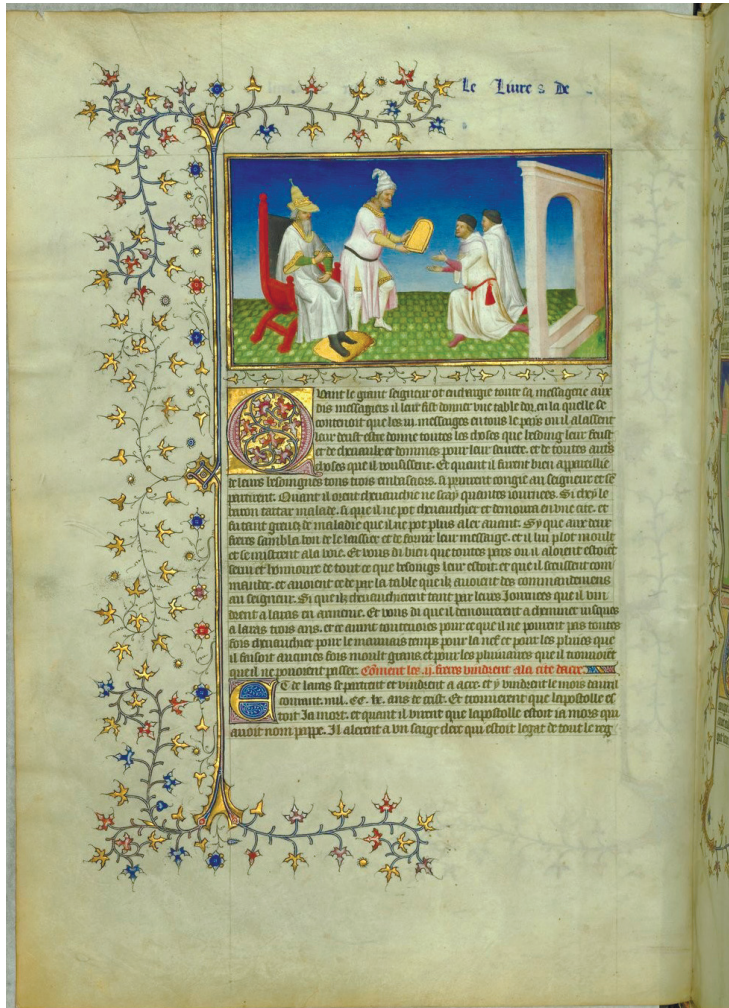 Le Liure s De
Quant le grant seigneur ot enchargie toute sa messagerie aux
dis messagiers il leur fist donner vne table dor, en la quelle se
contenoit que les .iii. messages en tous le pays ou il alassent
leur deust estre donne toutes les choses que besoing leur feust
et de cheuaulx et dommes pour leur seurte. et de toutes autres
choses que il vousissent. Et quant il furent bien appareillie
de leurs besoingnes tous trois embasators. si prinrent congie au seigneur et se
partirent. Quant il orent cheuauchie ne scay quantes iournees. Si chey le
baron tartar malade. si que il ne pot cheuauchier et demoura en vne cite. et
fu tant greuez de maladie que il ne pot plus aler auant. Sy que aux deux
freres sambla bon de le laissier et de fornir leur message. et il lui plot moult
et se mistrent a la voie. Et vous di bien que toutes pars ou il aloient estoient
serui et honnoure de tout ce que besoings leur estoit. et que il sceussent com
mander. et auoient ce de par la table que ilz auoient des commandemens
au seigneur. Si que ilz cheuauchierent tant par leurs Iournees que il vin
drent a laras en armenie. Et vous di que il demourerent a cheminer iusques
a laras trois ans. et ce auint toutesuoies pour ce que il ne pouoient pas toutes
fois cheuauchier pour le mauuais temps pour la nef et pour les pluies que
il faisoit aucunes fois moult grans. et pour les plumaires que il trouuoient
que il ne pouoient passer. Coment les .ij. freres vindrent a la cite dacre.
Et de laras se partirent et vindrent a acre. et y vindrent le mois dauril
courant. mil. cc. lx. ans de crist. Et trouuerent que lapostolle es
toit Ia mort. et quant il virent que lapostolle estoit ia mors qui
auoit nom pappe. Il alerent a vn saige clerc qui estoit legat de tout le reg